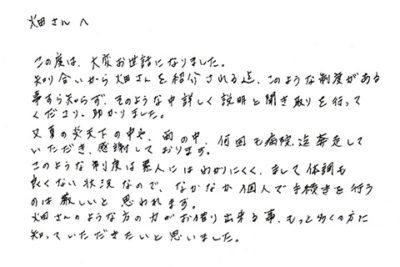 畑さんへ
この度は、大変お世話になりました。
知り合いから畑さんを紹介される迄、このような制度がある
事すら知らず、そのような中詳しく説明と聞き取りを行って
くださり、助かりました。
又真の炎天下の中や、雨の中、何回も病院迄奔走して
いただき、感謝しております。
このような制度は素人にはわかりにくく、まして体調も
良くない状況なので、なかなか個人で手続きを行う
のは厳しいと思われます。
畑さんのような方の力がお借り出来る事、もっと多くの方に
知っていただきたいと思いました。